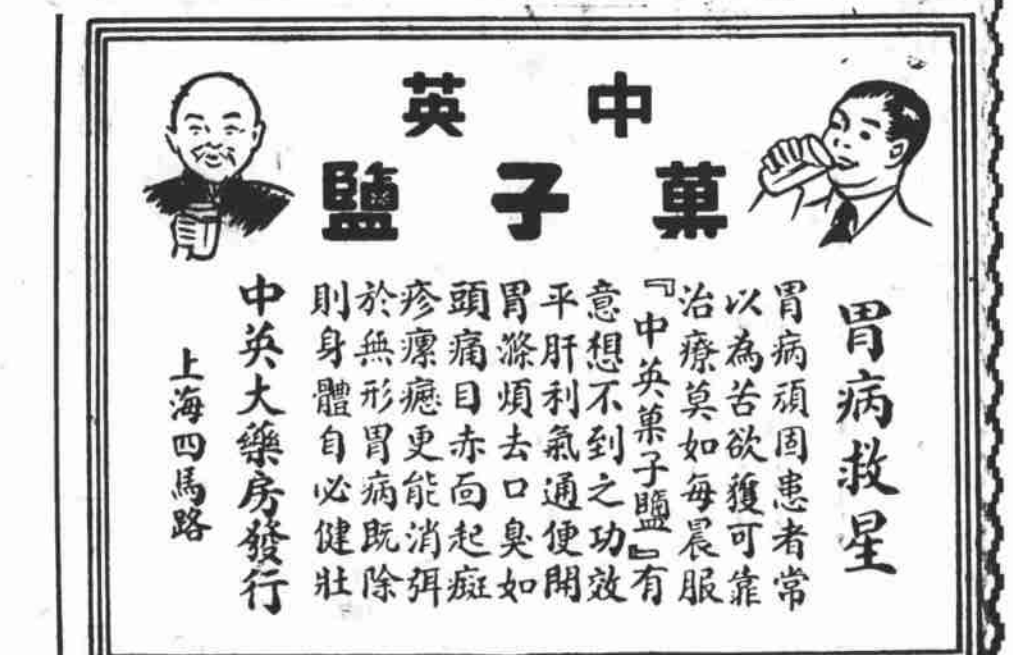 中英
菓子鹽
胃病救星
胃病頑固患者常
以為苦欲獲可靠
治療莫如每晨服
『中英菓子鹽』有
意想不到之功效
平肝利氣通便開
胃滌煩去口臭如
頭痛目赤面起
疹瘰更能消弭
於無形胃病既除
則身體自必健壯
中英大藥房發行
上海四馬路